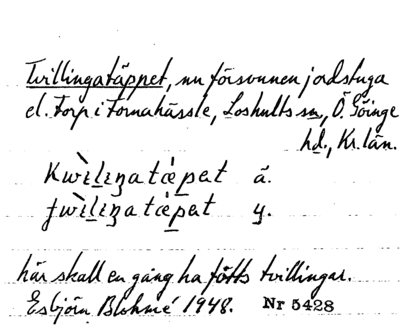 Tvillingatäppet, nu försvunnen jordstuga
el. torp i Tornahässle, Loshults sn, Ö. Göinge
hd., Kr. län.
Kwìliŋatæ̀pat ä.
ʃwìliŋatæ̀pat y.
här skall en gång ha fötts tvillingar.
Esbjörn Blohmé 1948. Nr 5428